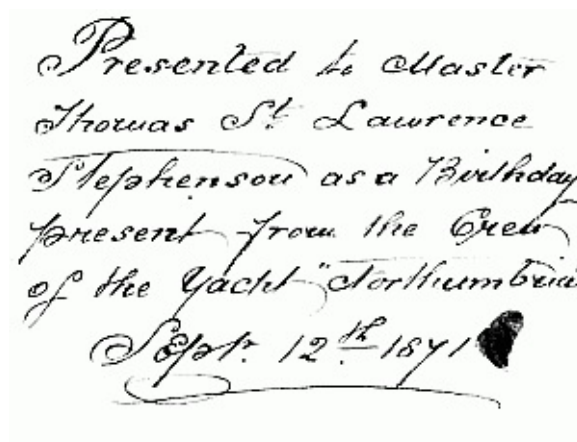 Presented to Master
Thomas St. Lawrence
Stephenson as a Birthday
present from the Crew
of the Yacht "Northumbria
Sept. 12th 1871